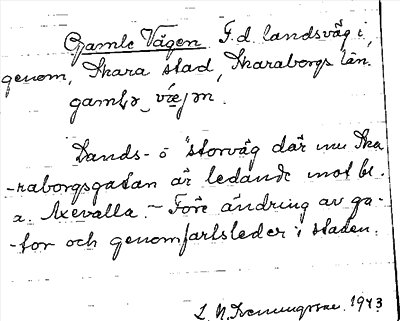 Gamle Vägen F.d. landsväg i,
genom, Skara stad, Skaraborgs län.
gamlə vǽjən.
Lands- o storväg där nu Ska
-raborgsgatan är ledande mot bl.
a. Axevalla. - Före ändring av ga-
-tor och genomfartsleder i staden.
1943